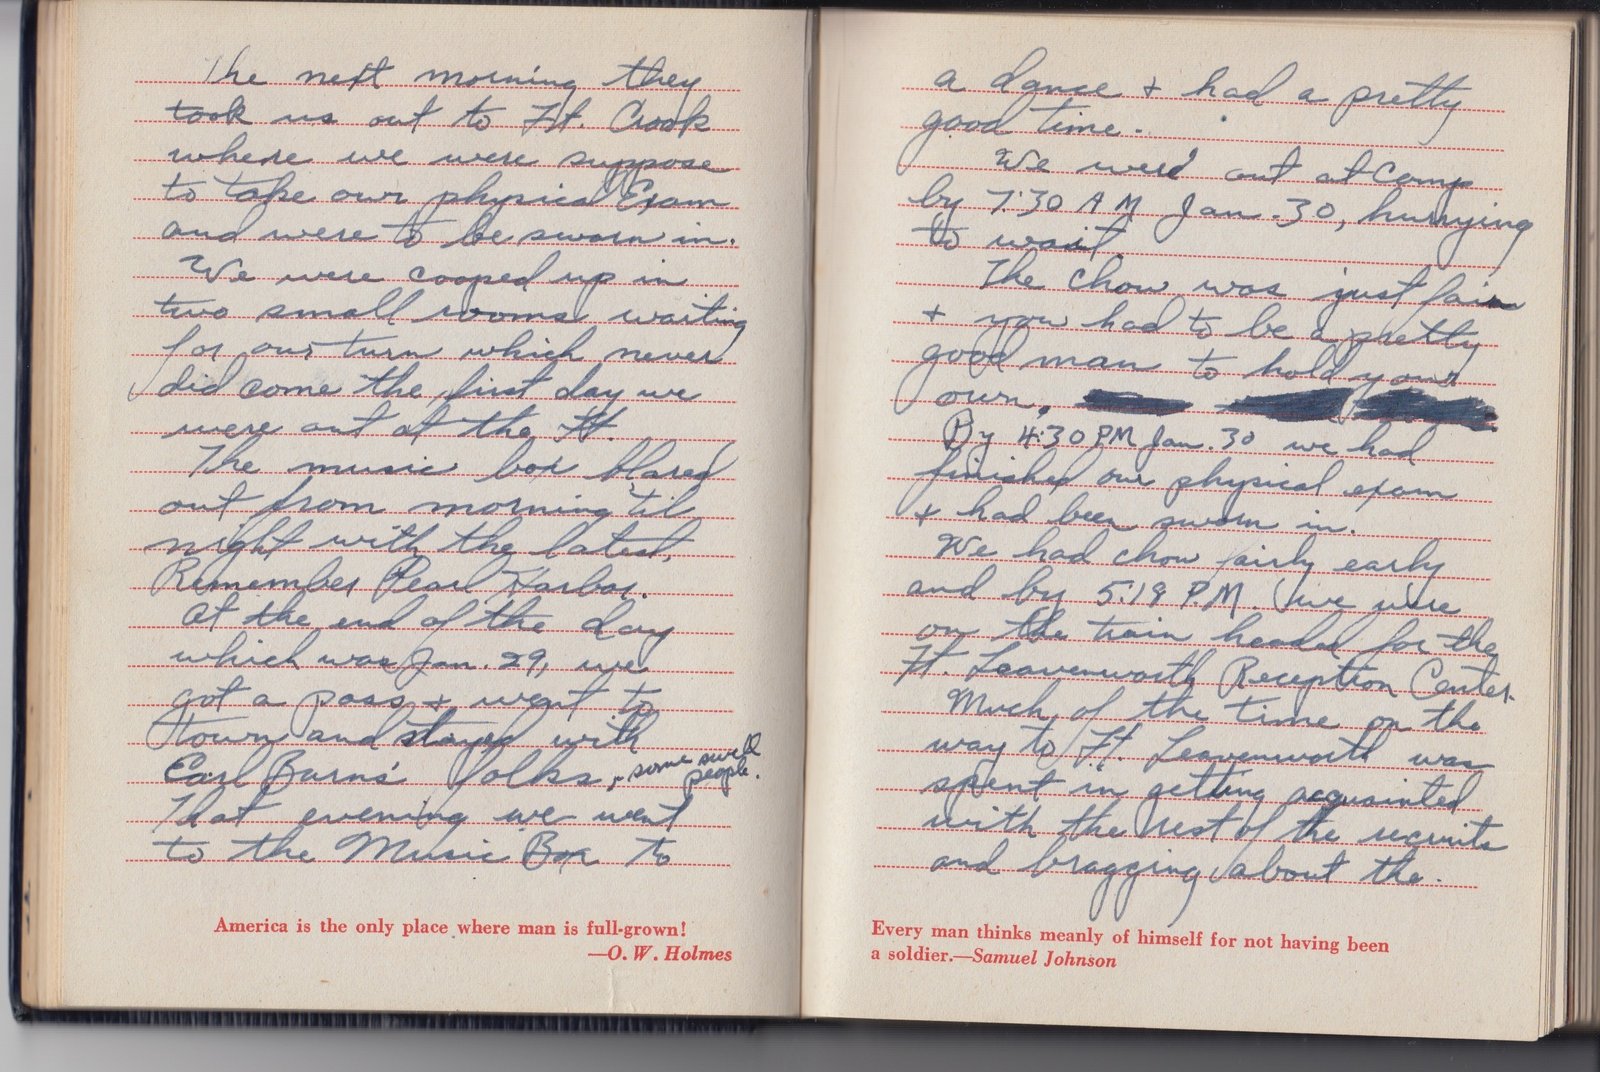 The next morning they
took us out to Ft. Crook
where we were suppose
to take our physical Exam
and were to be sworn in.
We were cooped up in
two small rooms waiting
for our turn which never
did come the first day we
were out at the Ft.
The music box blared
out from morning 'til
night with the latest,
Remember Pearl Harbor.
At the end of the day
which was Jan. 29, we
got a pass & went to
town and stayed with
Earl Barns' folks, some swell
people.
That evening we went
to the Music Box to
America is the only place where man is full-grown!
—O. W. Holmes
a dance & had a pretty
good time.
We were out at camp
by 7:30 AM Jan. 30, hurrying
to wait.
The chow was just fair
& you had to be a pretty
good man to hold your
own.
By 4:30 PM Jan. 30 we had
finished our physical exam
& had been sworn in.
We had chow fairly early
and by 5:18 P.M. we were
on the train headed for the
Ft. Leavenworth Reception Center.
Much of the time on the
way to Ft. Leavenworth was
spent in getting acquainted
with the rest of the recruits
and bragging about the.
Every man thinks meanly of himself for not having been
a soldier.—Samuel Johnson